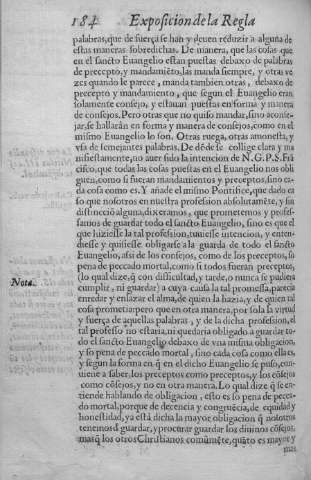 184 Exposicion de la Regla
palabras, que de fuerça se han y deuen reduzir a alguna de
estas maneras sobredichas. De manera, que las cosas que
en el sancto Euangelio estan puestas debaxo de palabras
de precepto, y mandamiẽto, las manda siempre, y otras ve
zes quando le parece, manda tambien otras, debaxo de
precepto y mandamiento, que segun el Euangelio eran
solamente consejo, y estauan puestas en forma y manera
de consejos. Pero otras que no quiso mandar, sino aconse-
jar, se hallarán en forma y manera de consejos, como en el
mismo Euangelio lo son. Otras ruega, otras amonesta, y
vsa de semejantes palabras. De dõde se collige clara y ma
nifiestamente, no auer sido la intencion de N.G.P.S. Frã
cisco, que todas las cosas puestas en el Euangelio nos obli
guen, como si fueran mandamientos y preceptos, sino ca-
da cosa como es. Y añade el mismo Pontifice, que dado ca
so que nosotros en nuestra profession absolutamẽte, y sin
distincciõ alguna, dixeramos, que prometemos y profes-
samos de guardar todo el sancto Euangelio, sino es que el
que hiziesse la tal profession, tuuiesse intencion, y enten-
diesse y quisiesse obligarse a la guarda de todo el sancto
Euangelio, assi de los consejos, como de los preceptos, so
pena de peccado mortal, como si todos fueran preceptos,
(lo qual dize, q̃ con difficultad, y tarde, o nunca se pudiera
Nota.
cumplir, ni guardar) a cuya causa la tal promessa, parecia
enredar y enlazar el alma, de quien la hazia, y de quien tal
cosa prometia: pero que en otra manera, por sola la virtud
y fuerça de aquellas palabras, y de la dicha profession, el
tal professo no estaria, ni quedaria obligado a guardar to-
do el sancto Euangelio debaxo de vna misma obligacion,
y so pena de peccado mortal, sino cada cosa como ella es,
y segun la forma en q̃ en el dicho Euangelio se puso, con-
uiene a saber, los preceptos como preceptos, y los cõsejos
como cõsejos, y no en otra manera. Lo qual dize q̃ se en-
tiende hablando de obligacion, esto es so pena de pecca-
do mortal, porque de decencia y congruẽcia, de equidad y
honestidad, ya está dicha la mayor obligacion q̃ nosotros
tenemos d̃ guardar, y procurar guardar los diuinos cõsejos,
mas q̃ los otros Christianos comũmẽte, quãto es mayor y
mas